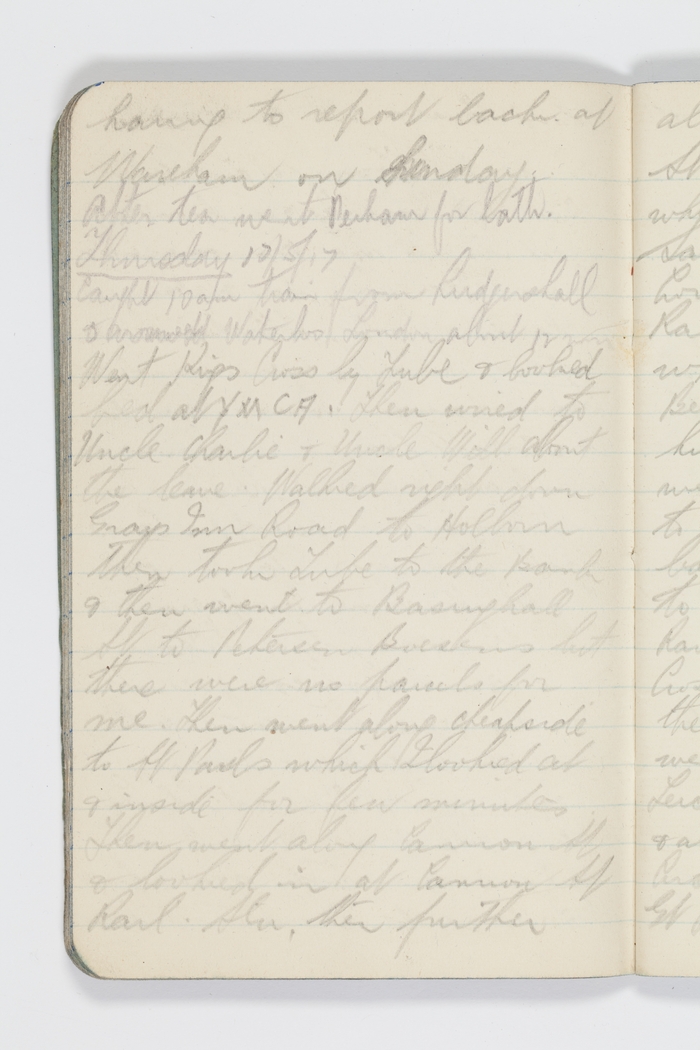 having to report back at
Wareham on Sunday.
After tea went Perham for bath.
Thursday 17/5/17
Caught 10am train from Ludgershall
& arrived Waterloo London about
Went Kings Cross by Tube & booked
bed at YMCA. Then wired to
Uncle Charlie & Uncle Will about
the leave. Walked right down
Grays Inn Road to Holborn
Then took Tube to the Bank
& then went to Basinghall
St to Petersen but
there were no parcels for
me. Then went along cheapside
to St Pauls which I looked at
& inside for few minutes
Then went along Cannon St
& looked in at Cannon St
Rail. Stn, then further